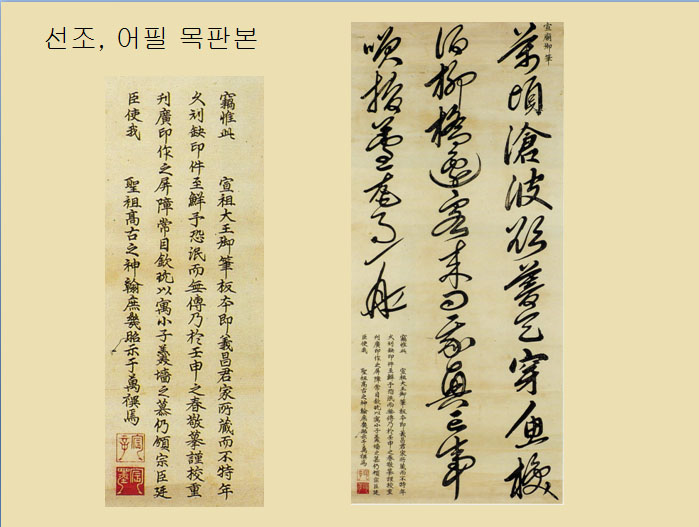 선조, 어필 목판본
竊惟此 宣祖大王御筆板本即義昌君家所藏而不特年
久刓缺印件至鮮予恐泯而無傳乃於壬申之春敬摹謹校重
刊廣印作之屛障常目欽玩以寓小子羹墻之慕仍頒宗臣廷
臣使我 聖祖高古之神翰庶幾昭示于萬禩焉
宣廟御筆
萬頃滄波欲暮天穿魚換
酒柳橋邊客來問我興亡事
笑指蘆花月一船
竊惟此 宣祖大王御筆板本即義昌君家所藏而不特年
久刓缺印件至鮮予恐泯而無傳乃於壬申之春敬摹謹校重
刊廣印作之屛障常目欽玩以寓小子羹墻之慕仍頒宗臣廷
臣使我 聖祖高古之神翰庶幾昭示于萬禩焉